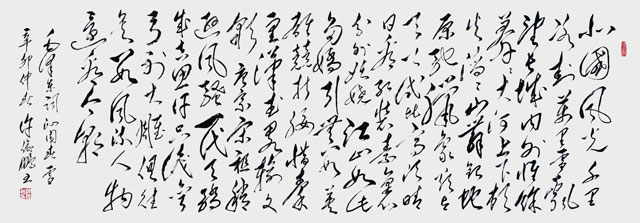 北國風光千里
冰封萬里雪飄
望長城內外惟餘
莽莽大河上下頓
失滔滔山舞銀蛇
原馳蠟象欲與
天公試比高須晴
日看紅裝素裹
分外妖嬈江山如此
多嬌引無數英
雄競折腰惜秦
皇漢武略輸文
采唐宗宋祖稍
遜風騷一代天驕
成吉思汗只識彎
弓射大雕俱往
矣數風流人物
還看今朝
毛澤東詞沁園春雪
辛卯仲